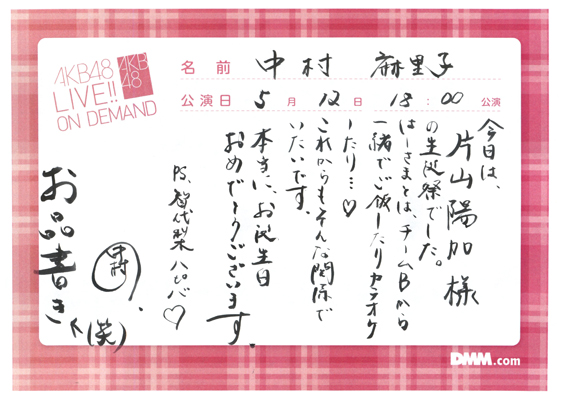 AKB48
LIVE!!
ON DEMAND
AKB
48
名前 中村 麻里子
公演日 5月12日 18:00 公演
今日は、
片山陽加様
の生誕祭でした。
はーさまとは、チームBから
一緒でご飯したりカラオケ
したり…♡
これからもそんな関係で
いたいです。
本当に、お誕生日
おめでとうございます。
P.S. 智代梨ハピバ♡
中村
お品書き
(笑)
DMM.com